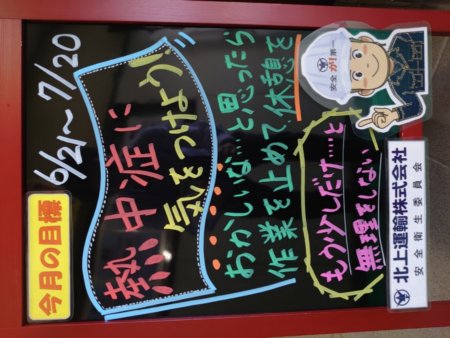 今月の目標
6/21〜7/20
熱中症に
気をつけよう!!
おかしいな…と思ったら
作業を止めて休憩を
もう少しだけ…と
無理をしない
安全が第一
北上運輸株式会社
安全衛生委員会